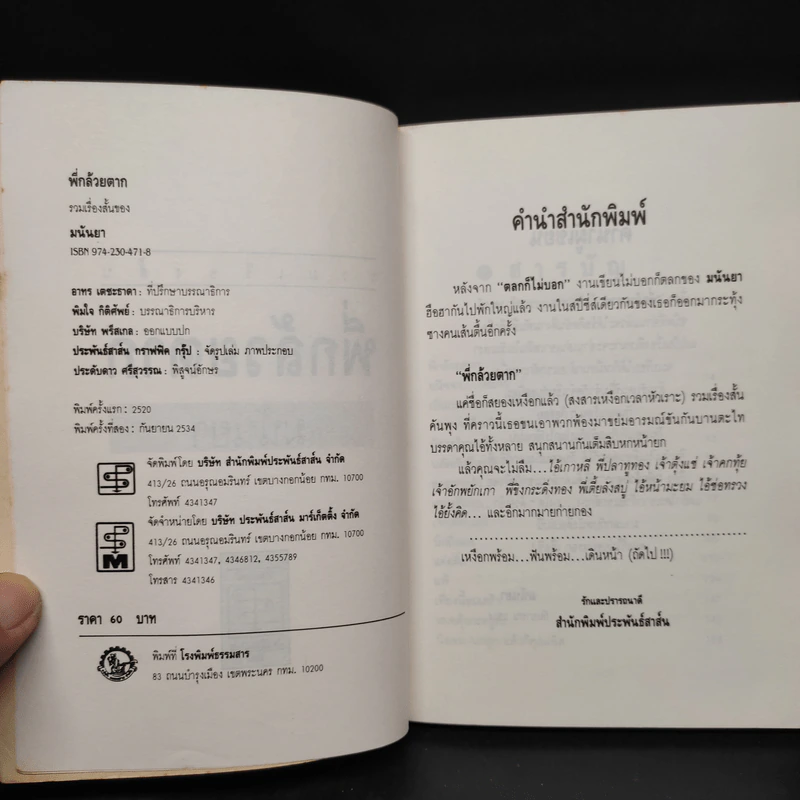 พี่กล้วยตาก
รวมเรื่องสั้นของ
มนันยา
ISBN 974-230-471-8
อาทร เตชะธาดา : ที่ปรึกษาบรรณาธิการ
พิมใจ กิติศัพย์ : บรรณาธิการบริหาร
บริษัท พรีสเกล : ออกแบบปก
ประพันธ์สาส์น กราฟฟิค กรุ๊ป : จัดรูปเล่ม ภาพประกอบ
ประดับดาว ศรีสุวรรณ : พิสูจน์อักษร
พิมพ์ครั้งแรก : 2520
พิมพ์ครั้งที่สอง : กันยายน 2534
จัดพิมพ์โดย บริษัท สำนักพิมพ์ประพันธ์สาส์น จำกัด
413/26 ถนนอรุณอมรินทร์ เขตบางกอกน้อย กทม. 10700
โทรศัพท์ 4341347
จัดจำหน่ายโดย บริษัท ประพันธ์สาส์น มาร์เก็ตติ้ง จำกัด
413/26 ถนนอรุณอมรินทร์ เขตบางกอกน้อย กทม. 10700
โทรศัพท์ 4341347, 4346812, 4355789
โทรสาร 4341346
M
ราคา 60 บาท
พิมพ์ที่ โรงพิมพ์ธรรมสาร
83 ถนนบำรุงเมือง เขตพระนคร กทม. 10200
คำนำสำนักพิมพ์
หลังจาก "ตลกก็ไม่บอก" งานเขียนไม่บอกก็ตลกของ มนันยา
ฮือฮากันไปพักใหญ่แล้ว งานในสปีชีส์เดียวกันของเธอก็ออกมากระทุ้ง
ซางคนเส้นตื้นอีกครั้ง
"พี่กล้วยตาก"
แค่ชื่อก็สยองเหงือกแล้ว (สงสารเหงือกเวลาหัวเราะ) รวมเรื่องสั้น
คันพุง ที่คราวนี้เธอขนเอาพวกพ้องมาขย่มอารมณ์ขันกันบานตะไท
บรรดาคุณไอ้ทั้งหลาย สนุกสนานกันเต็มสิบหกหน้ายก
แล้วคุณจะไม่ลืม...ไอ้เกาหลี พี่ปลาทูทอง เจ้าตุ้งแช่ เจ้าคกทุ้ย
เจ้าอักพยักเกา พี่ขิงกระดิ่งทอง พี่เตี้ยลังสบู่ ไอ้หน้ามะยม ไอ้ช่อทรวง
ไอ้ยั้งคิด... และอีกมากมายก่ายกอง
เหงือกพร้อม...ฟันพร้อม...เดินหน้า (ถัดไป !!!)
รักและปรารถนาดี
สำนักพิมพ์ประพันธ์สาส์น